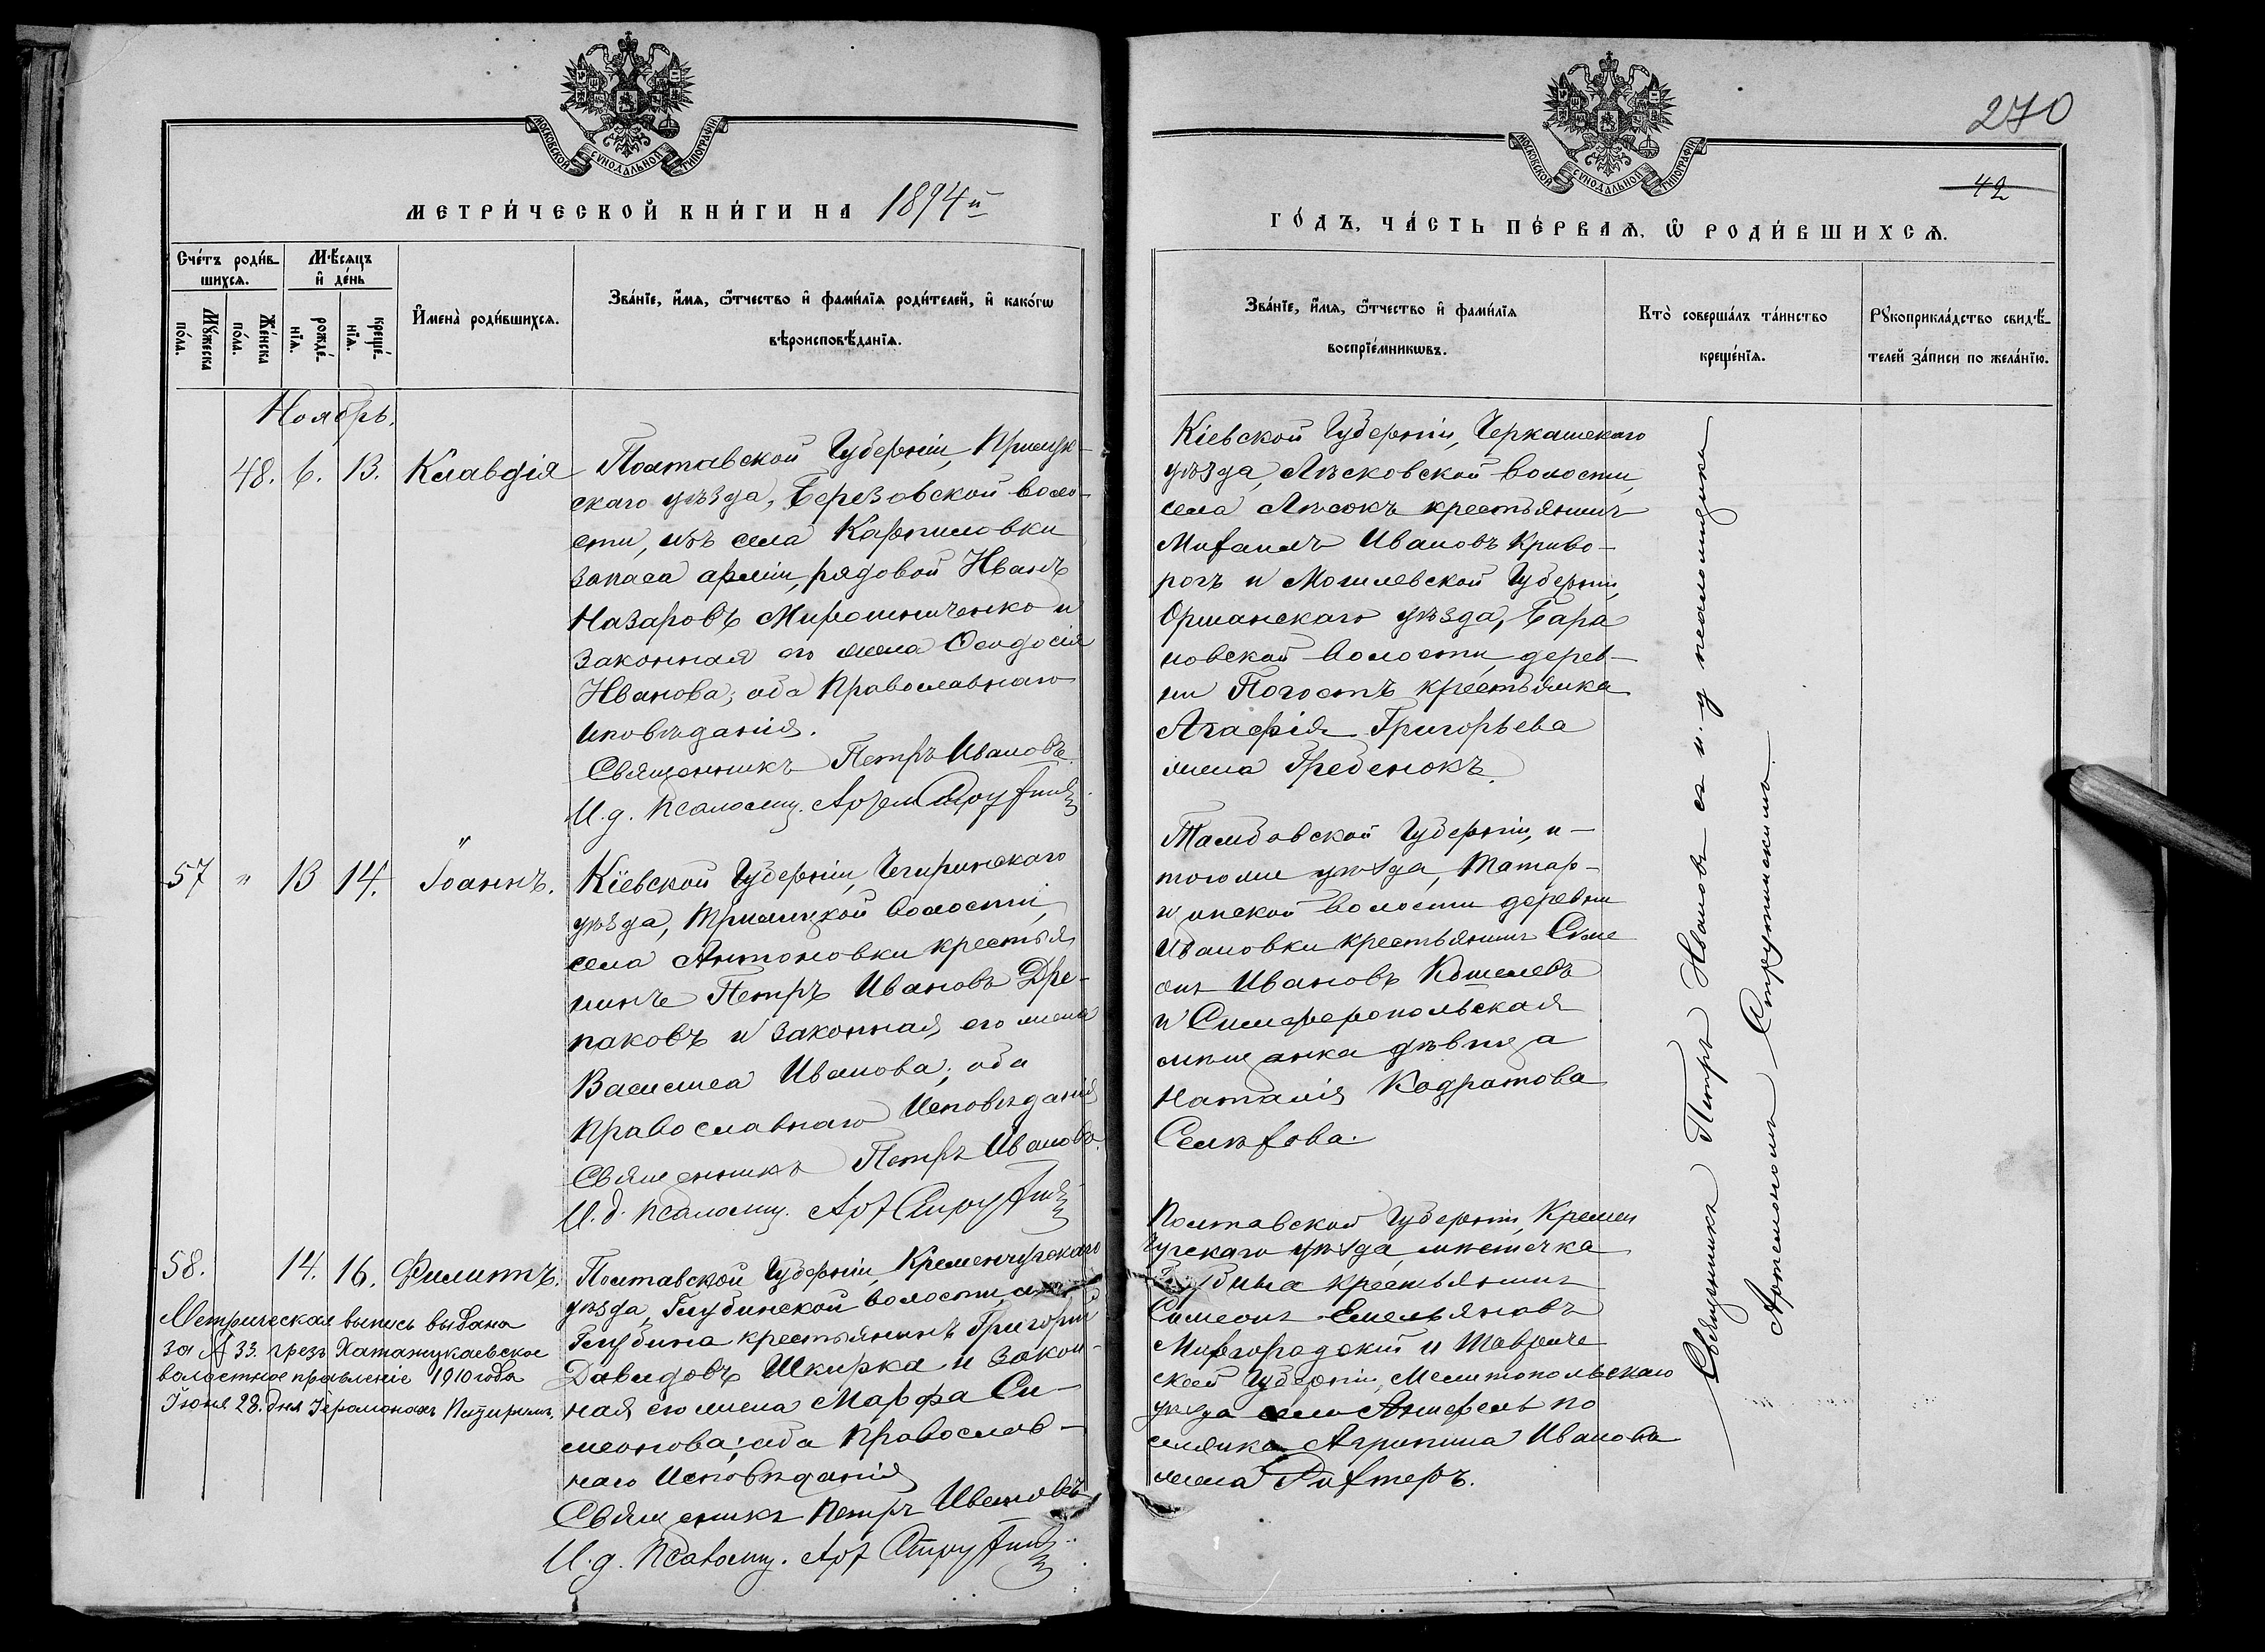 МОСКОВСКОЙ СѴНОДАЛЬНОЙ ТИПОГРАФІИ
МЕТРИ́ЧЕСКОЙ КНИ́ГИ НА 1894й
Сче́тъ роди́в-
шихсѧ.
Мѣ́сѧцъ
и҆ де́нь
Мꙋ́жеска
по́ла.
Же́нска
по́ла.
рожде́-
нїѧ.
креще́-
нїѧ.
И҆мена̀ роди́вшихсѧ.
Зва́нїе, и҆́мѧ, ѻ҆́тчество и҆ фами́лїѧ роди́телей, и҆ како́гѡ
вѣроисповѣ́данїѧ.
Ноябрь.
48. 6. 13. Клавдія
Полтавской Губерніи, Прилук-
скаго уѣзда, Березовской воло-
сти, изъ села Карпиловки
запаса арміи, рядовой Иванъ
Назаровъ Мирошниченко и
законная его жена Ѳеодосія
Иванова; оба Православнаго
исповѣданія.
Священникъ Петръ Ивановъ
И.д. псаломщ. Артем
57 " 13 14. Іоаннъ.
Кіевской Губерніи, Чигиринскаго
уѣзда, Трилицкой волости,
села Антоновки крестья
нинъ Петръ Ивановъ Дре-
паковъ и законная его жена
Василиса Иванова; оба
Православнаго Исповѣданія
Священникъ Петръ Ивановъ.
И.д. псаломщ. Арт
58. 14. 16. Филиппъ.
Полтавской Губерніи, Кременчугскаго
уѣзда, Глубинской волости,
Глубина крестьянинъ Григорій
Давидовъ Шкирка и закон-
ная его жена Марфа Си-
меонова; оба Православ-
наго Исповѣданія
Священникъ Петръ Ивановъ
И.д. Псаломщ. Арт
Метрическая выпись выдана
за № 33. чрезъ Хатажукаевское
волостное правленіе 1910 года
Іюня 28. дня Іеромонахъ Питиримъ.
270
42
МОСКОВСКОЙ СѴНОДАЛЬНОЙ ТИПОГРАФІИ
ГО́ДЪ, ЧА́СТЬ ПЕ́РВАѦ, Ѡ҆ РОДИ́ВШИХСѦ.
Зва́нїе, и҆́мѧ, ѻ҆́тчество и҆ фами́лїѧ
воспрїе́мникѡвъ.
Кто̀ соверша́лъ та́инство
креще́нїѧ.
Рꙋкоприкла́дство свидѣ́-
телей за́писи по жела́нїю.
Кіевской Губерніи, Черкашскаго
уѣзда, Лѣсковской волости,
села Лѣсокъ крестьянинъ
Михаилъ Ивановъ Криво-
рогъ и Могилевской Губерніи,
Оршанскаго уѣзда, Бара
новской волости, дерев-
ни Погостъ крестьянка
Агафія Григорьева
жена Гребенокъ.
Тамбовской Губерніи, и-
тогоже уѣзда, Татар-
щинской волости деревни
Ивановки крестьянинъ Симе
онъ Ивановъ Кошелевъ
и Симферопольская
мѣщанка дѣвица
Наталія Кодратова
Селѣхова.
Полтавской Губерніи, Кремен
чугскаго уѣзда, мѣстечка
крестьянинъ
Симеонъ Емельяновъ
Миргородскій и Тавриче
ской Губерніи, Мелитопольскаго
уѣзда по
селянка Агрипина Иванова
жена Рихтеръ.
Священникъ Петръ Ивановъ съ и. д псаломщика
Артемономъ Струтинскимъ.